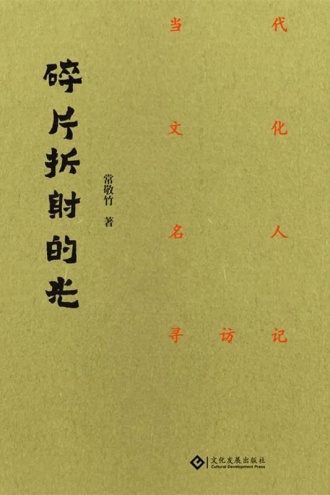 碎片折射的光
常敬竹 著
当代
文化
名人
寻访记
文化发展出版社
Cultural Development Press